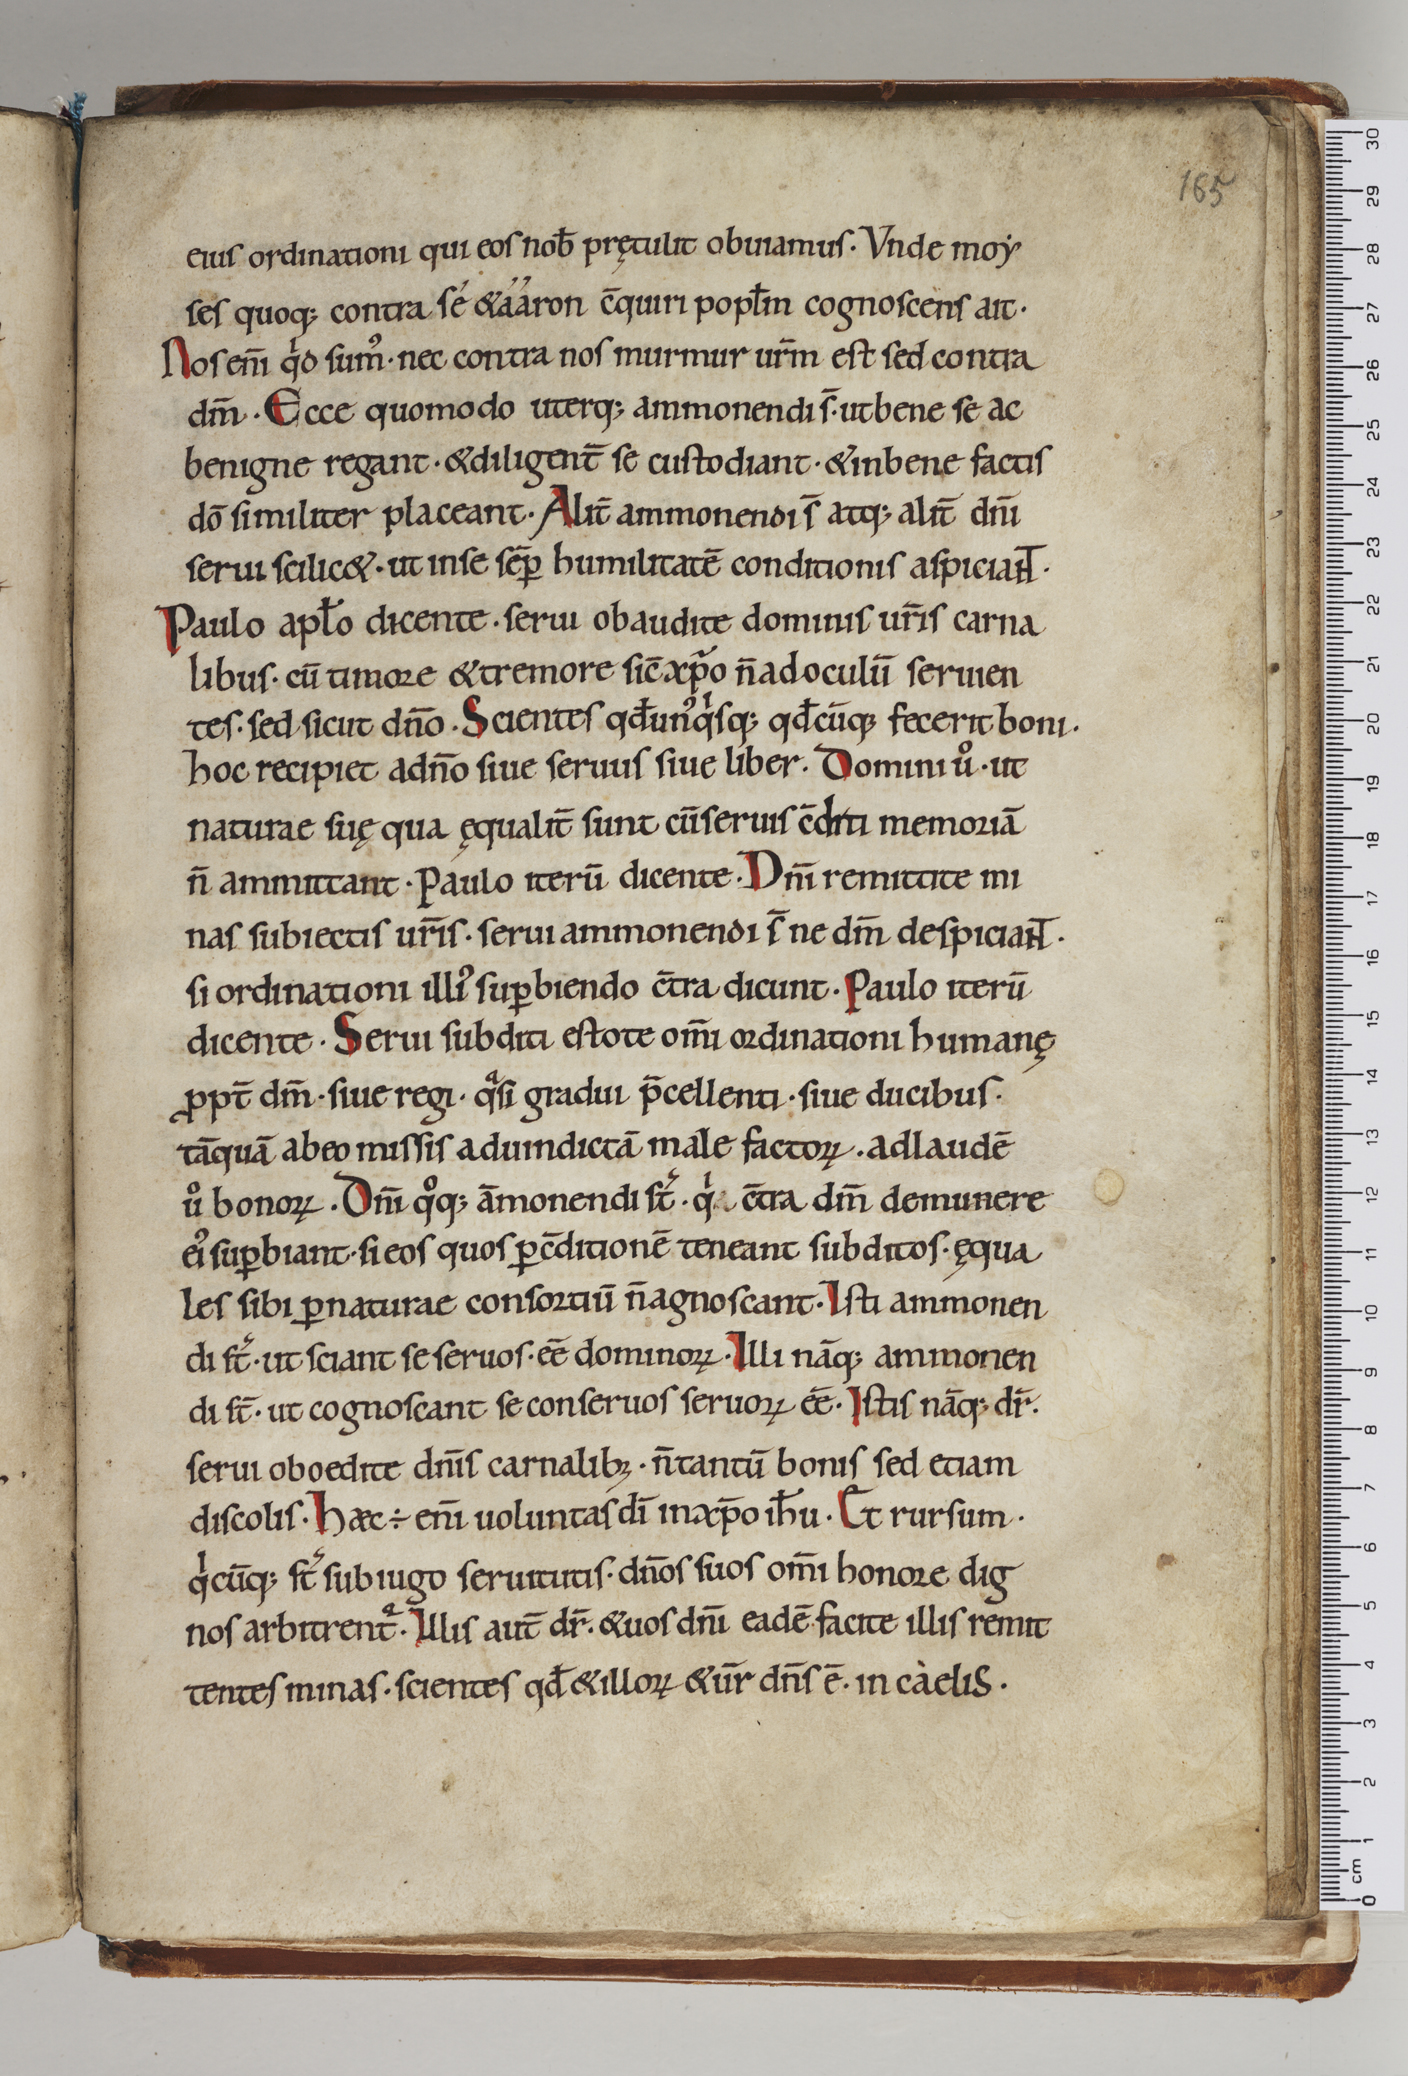 165
eius ordinationi qui eos nob̄ prętulit obuiamus. Vnde moẏ
ses quoq; contra sé &ááron c̄quiri popl̄m cognoscens ait.
Nos eni̅ qͥd sumꝰ. nec contra nos murmur ur̄m est sed contra
dm̄. Ecce quomodo uterq; ammonendi s̄. ut bene se ac
benigne regant. &diligent̄ se custodiant. &inbene factis
dō similiter placeant. Alit̄ ammonendi s̄ atq; alit̄ dn̄i
serui scilic&. ut inse sēp humilitatē conditionis aspiciaNT.
Paulo apl̄o dicente. serui obaudite dominis ur̄is carna
libus. cū timore &tremore sic̄ xp̄o n̄ adoculū seruien
tes. sed sicut dn̄o. Scientes qd̄ unꝰqͥsq; qd̄cūq; fecerit boni.
hoc recipiet adn̄o siue seruus siue liber. Domini uͦ. ut
naturae suę qua ęqualit̄ sunt cū seruis c̄diti memoriā
n̄ ammittant. Paulo iterū dicente. Dn̄i remittite mi
nas subiectis ur̄is. serui ammonendi s̄ ne dm̄ despiciaNT.
si ordinationi illiꝰ suꝑbiendo c̄tra dicunt. Paulo iterū
dicente. Serui subditi estote om̄i ordinationi humanę
ꝓpt̄ dm̄. siue regi. qͣsi gradui p̄cellenti. siue ducibus.
tāquā abeo missis aduindictā male factoꝝ. adlaudē
uͦ bonoꝝ. Dn̄i qͦq; āmonendi st̄. qͥ c̄tra dm̄ demunere
eiꝰ suꝑbiant. si eos quos ꝑ c̄ditionē teneant subditos. ęqua
les sibi ꝑ naturae consortiū n̄ agnoscant. Isti ammonen
di st̄. ut sciant se seruos. eē dominoꝝ. Illi nāq; ammonen
di st̄. ut cognoscant se conseruos seruoꝝ eē. Istis nāq; dr̄.
serui oboedite dn̄is carnalibꝫ. n̄ tantū bonis sed etiam
discolis. Haec ÷ eni̅ uoluntas dī inxp̄o ih̄u. Et rursum.
qͥcūq; st̄ sub iugo seruitutis. dn̄os suos om̄i honore dig
nos arbitrentᷓ. Illis aut̄ dr̄. &uos dn̄i eadē facite illis remit
tentes minas. scientes qd̄ &illoꝝ &ur̄ dn̄s ē. in càelis.